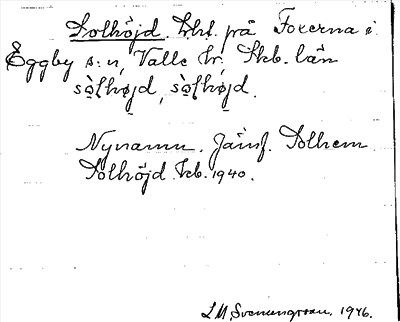 Solhöjd. Lht. på Foxerna i
Eggby s:n, Valle hr. Skb. län
sòlhøjd, sòlhøjd.
Nynamn. Jämf. Solhem
Solhöjd kb. 1940.
L M Svenungsson. 1946.